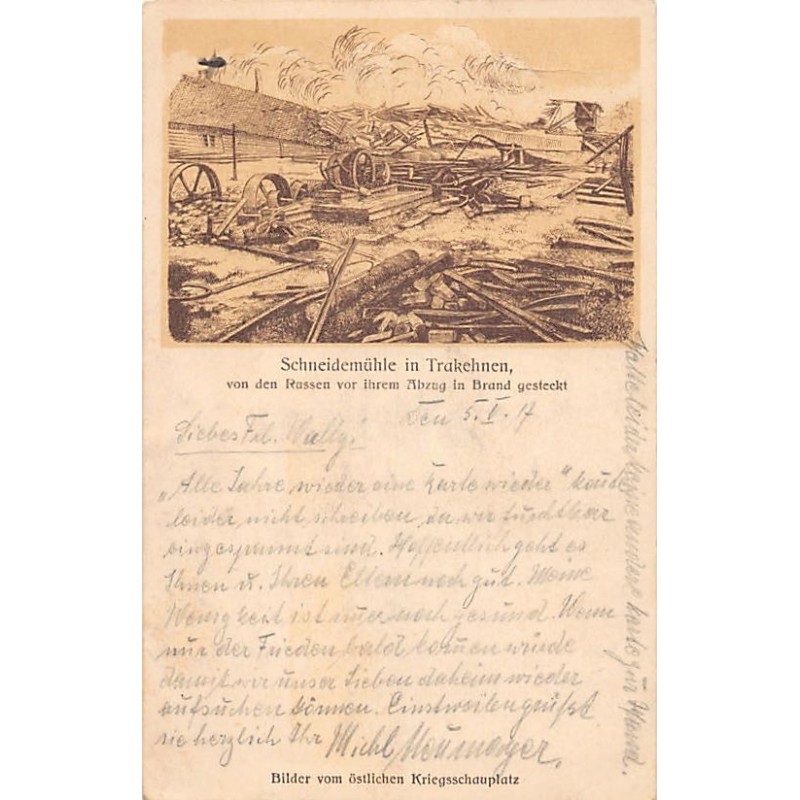 Schneidemühle in Trakehnen,
von den Russen vor ihrem Abzug in Brand gesteckt
Den 5.V.17
Liebes Frl. Wally!
„Alle Jahre wieder eine Karte wieder" konnte
leider nicht schreiben, da wir furchtbar
eingespannt sind. Hoffentlich geht es
Ihnen u. Ihren Eltern noch gut. Meine
Wenigkeit ist nur noch gesund. Wenn
nur der Frieden bald komen würde
damit wir unser Lieben daheim wieder
aufsuchen können. Einstweilen grüsst
sie herzlich Ihr Michl Neumayer.
Bilder vom östlichen Kriegsschauplatz
Habe leider keine andere Karte zur Hand.